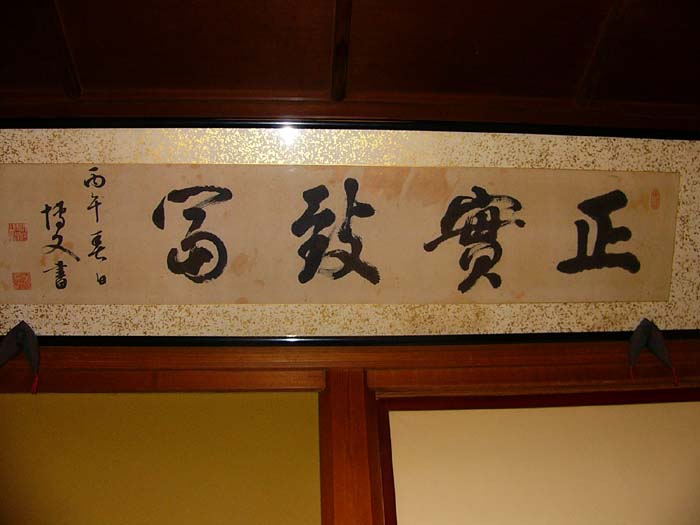 正實致冨
丙午春日
博文書